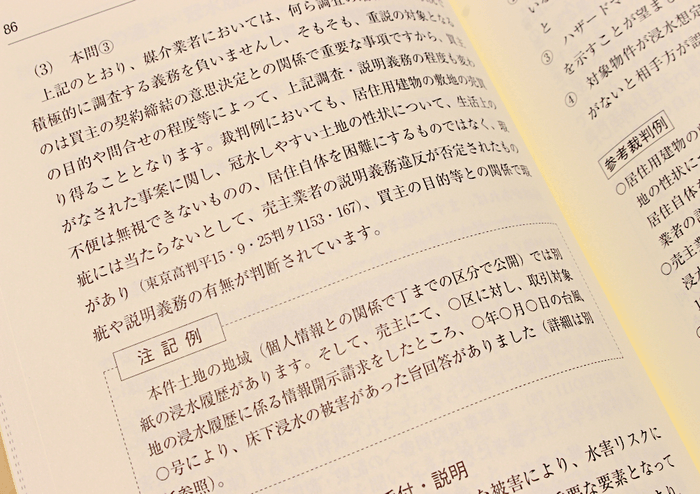 86
(3) 本問③
上記のとおり、媒介業者においては、何ら調査の
積極的に調査する義務を負いませんし、そもそも、重説の対象となる
のは買主の契約締結の意思決定との関係で重要な事項ですから、買主
の目的や問合せの程度等によって、上記調査・説明義務の程度も変わ
り得ることとなります。裁判例においても、居住用建物の敷地の売買
がなされた事案に関し、冠水しやすい土地の性状について、生活上の
不便は無視できないものの、居住自体を困難にするものではなく、瑕
疵には当たらないとして、売主業者の説明義務違反が否定されたもの
があり（東京高判平15・9・25判タ1153・167）、買主の目的等との関係で瑕
疵や説明義務の有無が判断されています。
注記例
本件土地の地域（個人情報との関係で丁までの区分で公開）では別
紙の浸水履歴があります。そして、売主にて、〇区に対し、取引対象
地の浸水履歴に係る情報開示請求をしたところ、〇年〇月〇日の台風
〇号により、床下浸水の被害があった旨回答がありました（詳細は別
参照）。
付・説明
な被害により、水害リスクに
要な要素となって
と
ハザードマ
を示すことが望まし
③ 対象物件が浸水想
④ がないと相手方が誤
参考裁判例
〇居住用建物の
地の性状に
居住自体
業者の
〇売主業
浸